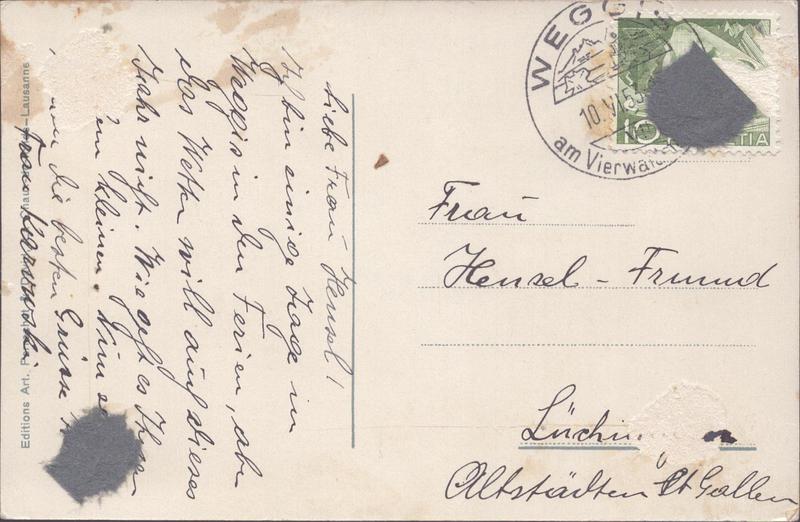 Liebe Frau Hensel!
Ich bin einige Tage in
Weggis in den Ferien, aber
das Wetter will auch dieses
Jahr nicht. Wie geht es Ihnen
kleinen.
die besten Grüsse
Frau
Editions Art. Lausanne
WEGGIS
10.VI.53
am Vierwald
10
HELVETIA
Frau
Hensel-Freund
Lüchin
Altstädten St Gallen